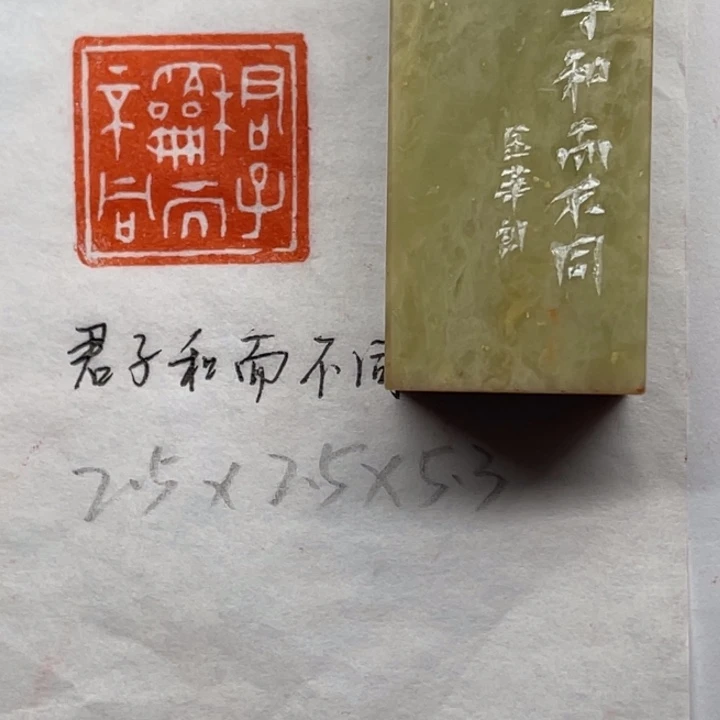 君子
龢而
不同
君子和而不同
2.5×2.5×5.3
子和而不同